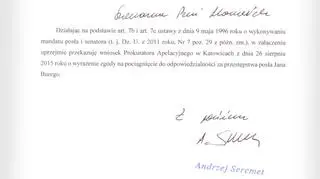 Szanowna Pani Marszałek
Działając na podstawie art. 7b i art. 7c ustawy z dnia 9 maja 1996 roku o wykonywaniu
mandatu posła i senatora (t. j. Dz. U. z 2011 roku, Nr 7 poz. 29 z późn. zm.), w załączeniu
uprzejmie przekazuję wniosek Prokuratora Apelacyjnego w Katowicach z dnia 26 sierpnia
2015 roku o wyrażenie zgody na pociągnięcie do odpowiedzialności za przestępstwa posła Jana
Burego.
Z
Andrzej Seremet